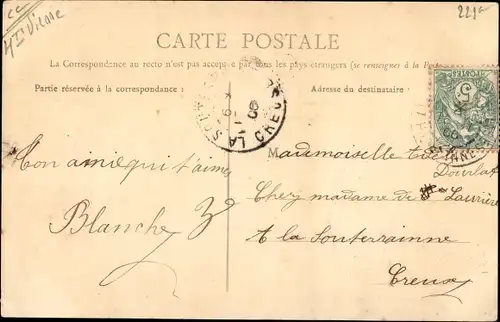 cc
221
CARTE POSTALE
La Correspondance au recto n'est pas acceptée par tous les pays étrangers (se renseigner à la Poste
Partie réservée à la correspondance :
Adresse du destinataire :
LA SOUT
CREUSE
5
Ton amie qui t'aime
Blanche
Mademoiselle
Chez madame de Laurière
A la Souterrainne
Creuse